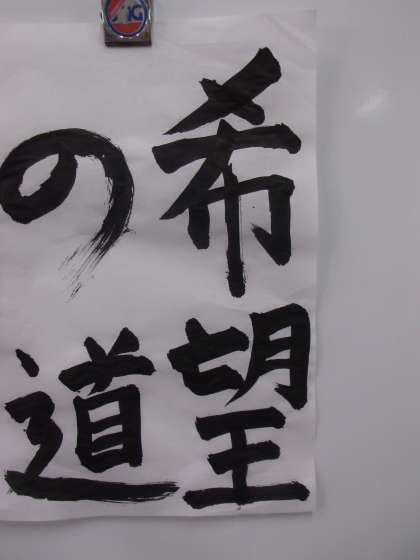 希望
の道